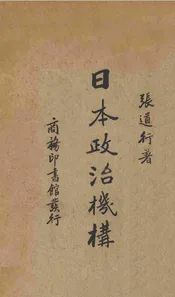 張道行著
日本政治機構
商務印書館發行